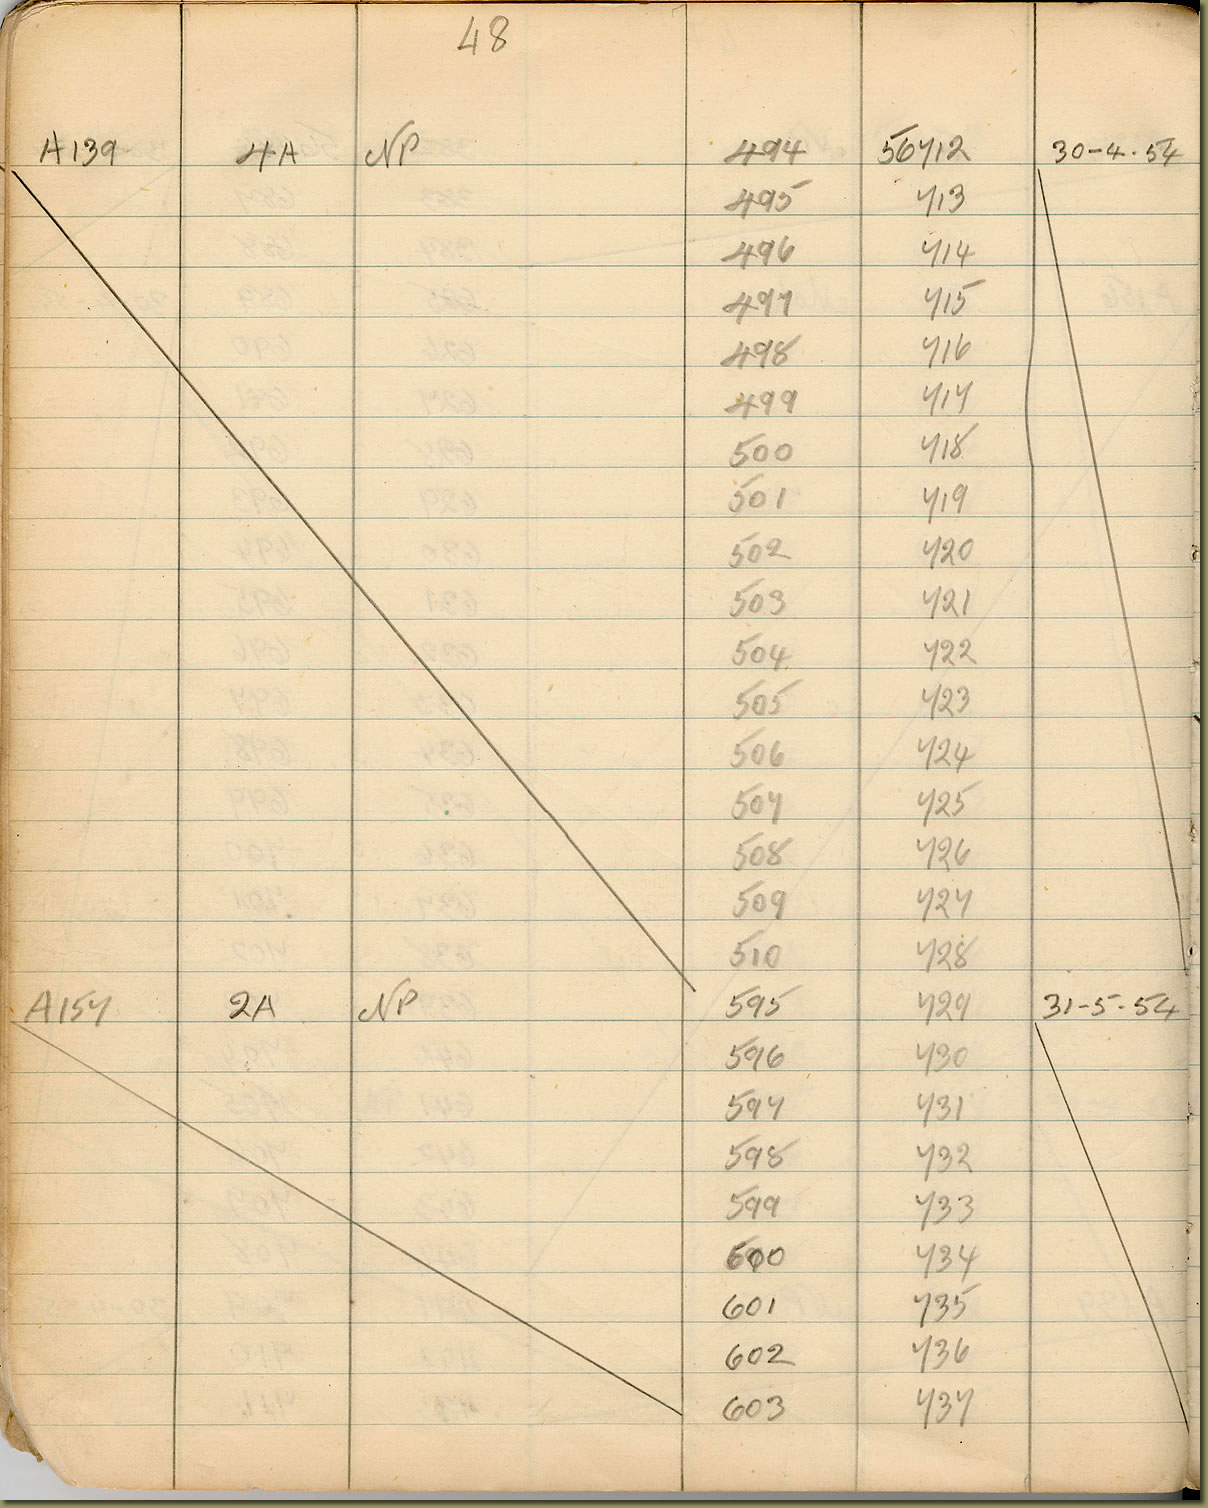 48
A139 4A NP 494 56712 30-4-54
495 713
496 714
497 715
498 716
499 717
500 718
501 719
502 720
503 721
504 722
505 723
506 724
507 725
508 726
509 727
510 728
A157 2A NP 595 729 31-5-54
596 730
597 731
598 732
599 733
600 734
601 735
602 736
603 737